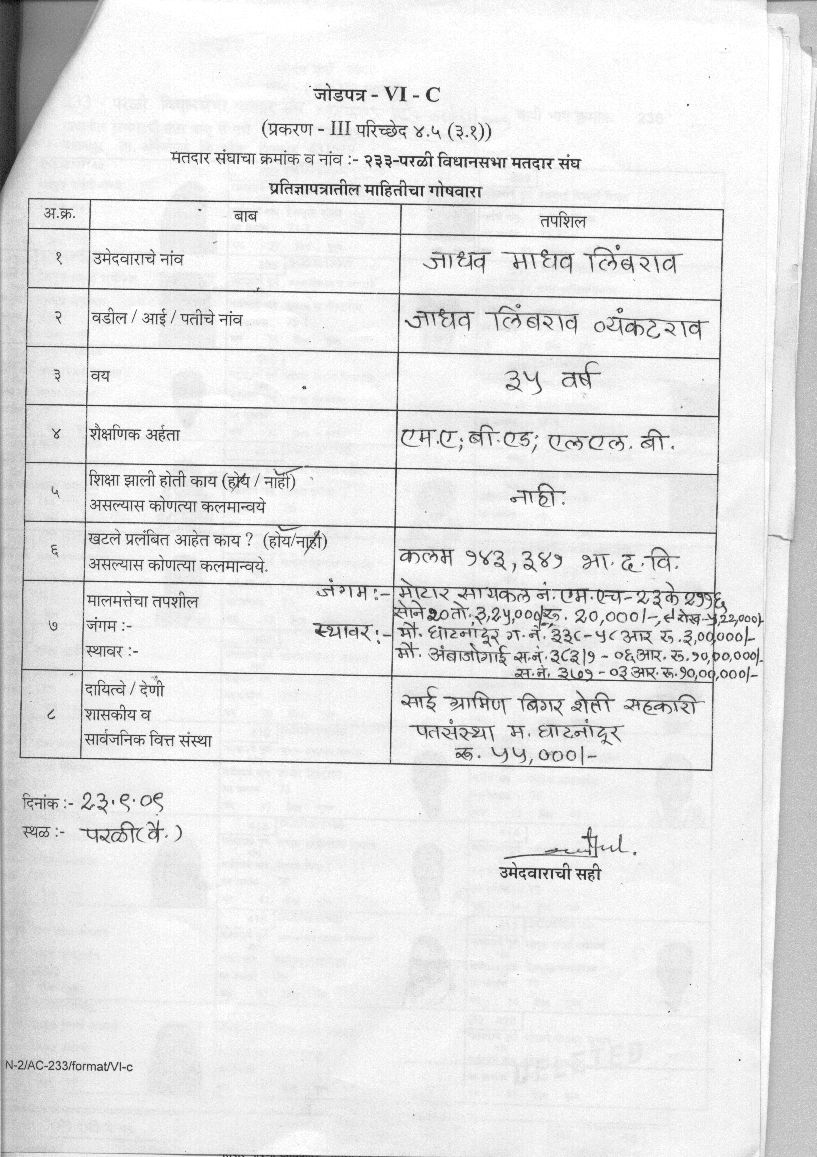 जोडपत्र - VI - C
(प्रकरण - III परिच्छेद ४.५ (३.१))
मतदार संघाचा क्रमांक व नांव :- २३३-परळी विधानसभा मतदार संघ
प्रतिज्ञापत्रातील माहितीचा गोषवारा
अ.क्र. बाब तपशिल
१ उमेदवाराचे नांव जाधव माधव लिंबराव
२ वडील / आई / पतीचे नांव जाधव लिंबराव व्यंकटराव
३ वय ३५ वर्ष
४ शैक्षणिक अर्हता एम.ए; बी.एड; एलएल. बी.
५ शिक्षा झाली होती काय (होय / नाही)
असल्यास कोणत्या कलमान्वये नाही.
६ खटले प्रलंबित आहेत काय ? (होय/नाही)
असल्यास कोणत्या कलमान्वये. कलम १४३, ३४१ भा. द. वि.
७ मालमत्तेचा तपशील
जंगम :-
स्थावर :-
जंगम :- मोटार सायकल नं. एम.एच-23 के 2११६
सोने 20 तो. 3,25,000/ रू. 20,000/-, 5,22,000/-
स्थावर :- मौ. घाटनांदूर ग. नं. ३३८ - ५८ आर रु. 3,00,000/-
मौ. अंबाजोगाई स.नं. ३८३/१ - ०६ आर. रू. १०,००,०००/-
स.नं. ३८१ - ०३ आर. रू. १०,००,०००/-
८ दायित्वे / देणी
शासकीय व
सार्वजनिक वित्त संस्था
साई ग्रामिण बिगर शेती सहकारी
पतसंस्था म. घाटनांदूर
रू. ५५,०००/-
दिनांक :- 23.९.०९
स्थळ :- परळी (वै.)
उमेदवाराची सही
N-2/AC-233/format/VI-c